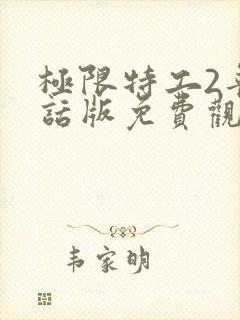 極限特工2
話版免費觀
韦家明